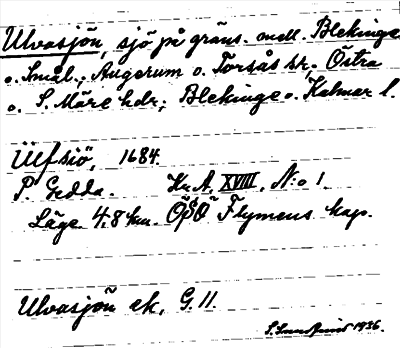 Ulvasjön, sjö på gräns. mell. Blekinge
o. Smål.; Augerum o. Torsås sr. Östra
o. S. Möre hdr; Blekinge o. Kalmar l.
Ülfsiö, 1684.
P. Gedda. Kr.A. XVIII, N:o 1.
Läge 4,8 km. ÖSÖ Flymens kap.
Ulvasjön ek. G. 11.
1936.